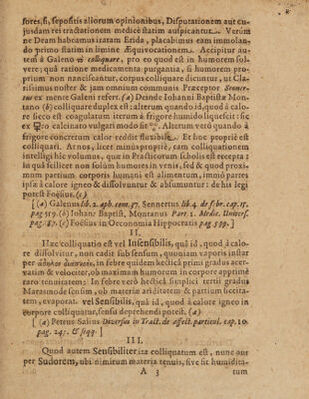 sores, si, sepositis aliorum opinionibus, Disputationem aut cu-
jusdam rei tractationem medicè statim auspicantur. Verùm
ne Deam habeamus iratam Erida, placabimus eam immolan-
do primo statim in limine Æquivocationem. Accipitur au-
tem à Galeno colliquare, pro eo quod est in humorem sol-
vere; quâ ratione medicamenta purgantia, si humorem pro-
prium non nanciscantur, corpus colliquare dicuntur, ut Cla-
rissimus noster & jam omnium communis Præceptor Senner-
tus ex mente Galeni refert. (a) Deinde Iohanni Baptistæ Mon-
tano (b) colliquare duplex est: alterum quando id, quod à calo-
re sicco est coagulatum iterum à frigore humido liquescit: sic
ex calcinato vulgari modo fit. Alterum verò quando à
frigore concretum calor reddit fluxibile. Et hoc propriè est
colliquari. At nos, licet minus propriè, eam colliquationem
intelligi hîc volumus, quæ in Practicorum scholis est recepta:
in quâ scilicet non solùm humores in venis, sed & quod proxi-
mum partium corporis humani est alimentum, immò partes
ipsæ à calore igneo & dissolvuntur & absumuntur: de his legi
potest Foësius. (c)
[ (a) Galenus lib. 2. aph. com. 37. Sennertus lib. 4. de febr. cap. 17.
pag. 519. (b) Iohan: Baptist, Montanus Part. 1. Medic. Univers.
pag. 187. (c) Foësius in Oeconomia Hippocratis pag. 599. ]
II.
Hæc colliquatio est vel Insensibilis, quâ id, quod à calo-
re dissolvitur, non cadit sub sensum, quoniam vapor is instar
per in febre quidem hecticâ primi gradus acer-
vatim & velociter, ob maximam humorem in corpore apprimè
raro tenuitatem: In febre verò hecticâ simplici tertii gradus
Marasmode sensim, ob materiæ ariditatem & partium siccita-
tem, evaporat. vel Sensibilis, quâ id, quod à calore igneo in
corpore colliquatur, sensu deprehendi poteit. (a)
[ (a) Petrus Salius Diversus in Tract. de affect. particul. cap. 10.
pag. 241. & seqq. ]
III.
Quod autem Sensibiliter ita colliquatum est, nunc aut
per Sudorem, ubi nimirum materia tenuis, sive sic humidita-
A 3 tum